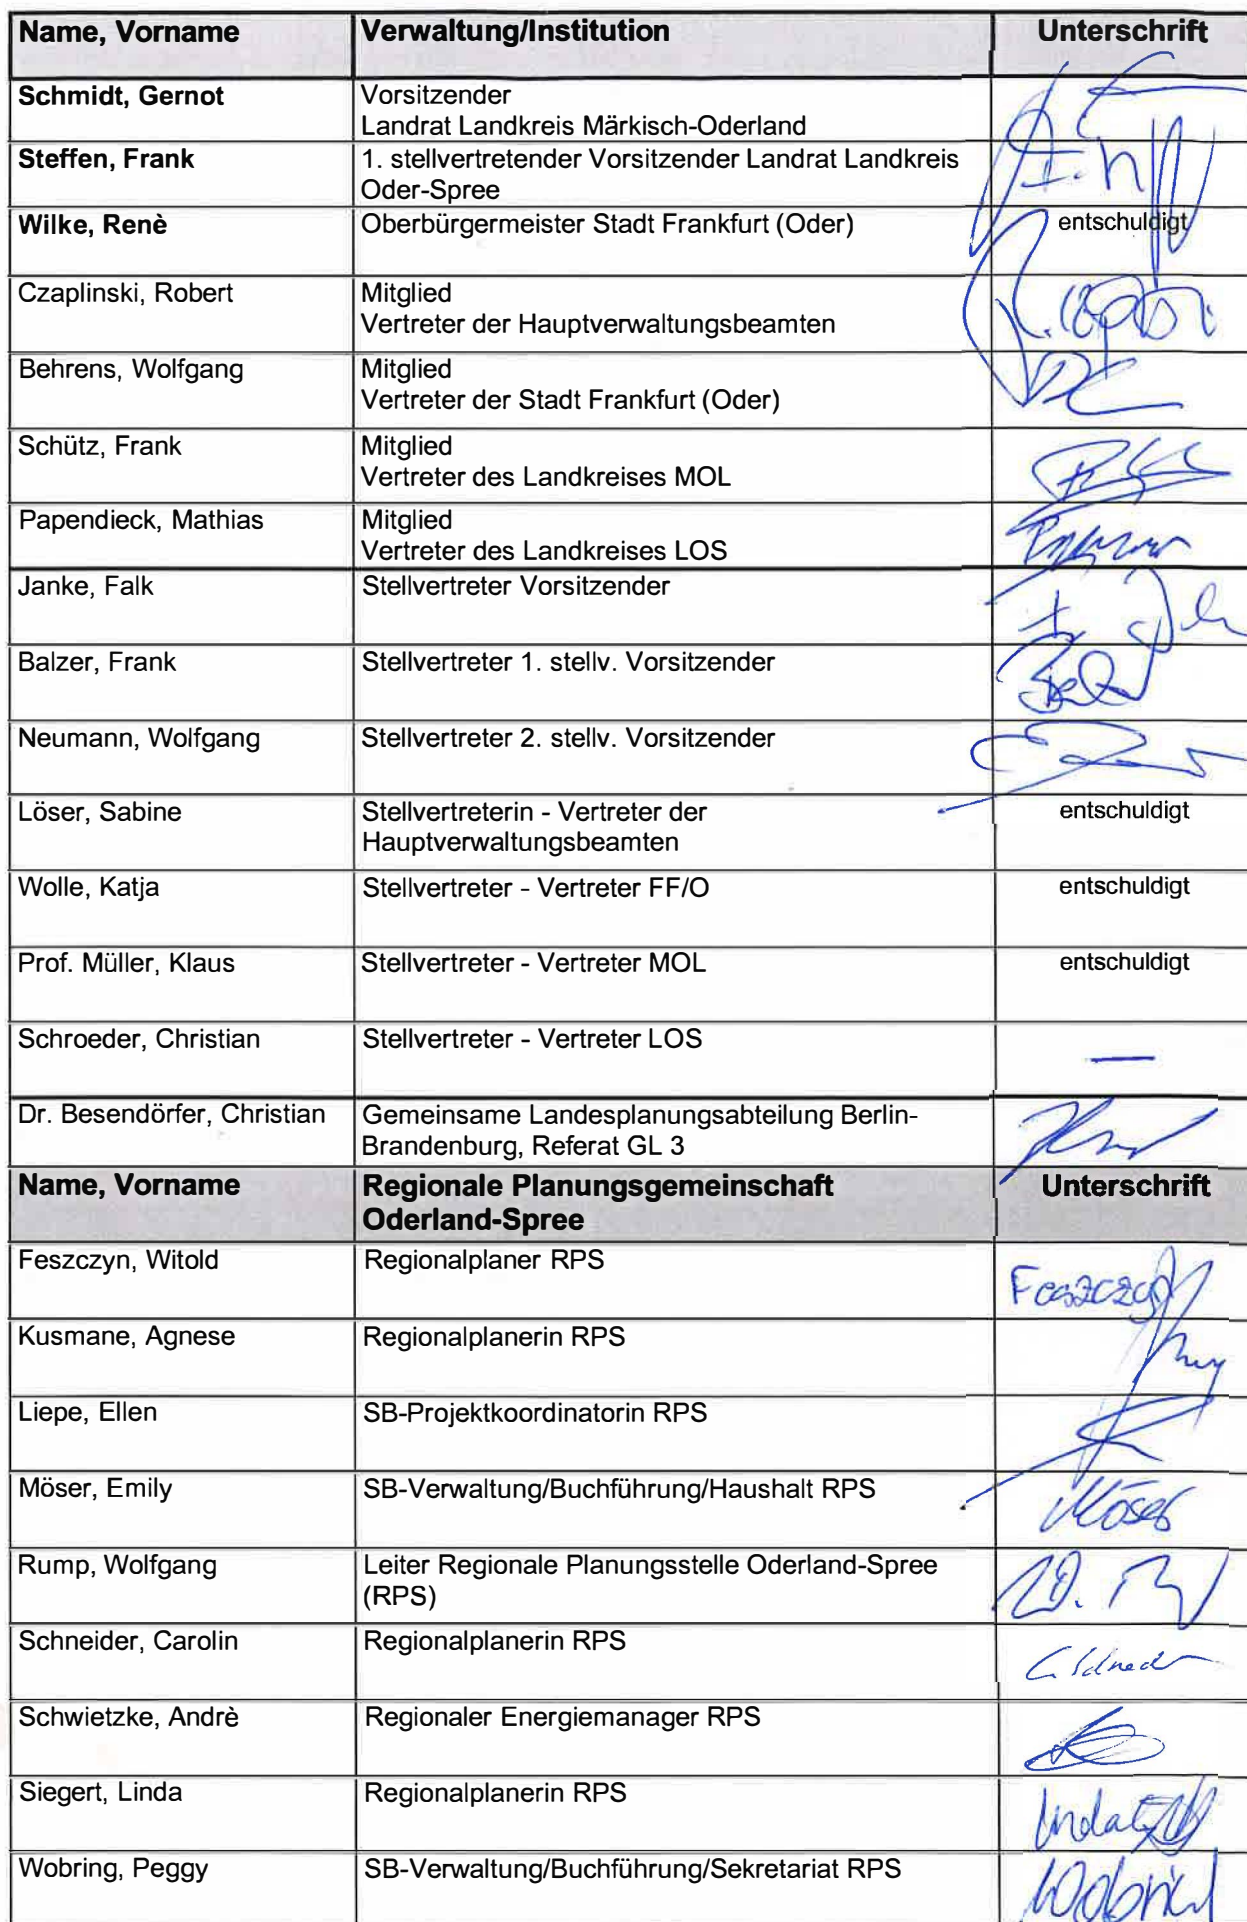 Name, Vorname Verwaltung/Institution Unterschrift
Schmidt, Gernot Vorsitzender
Landrat Landkreis Märkisch-Oderland
Steffen, Frank 1. stellvertretender Vorsitzender Landrat Landkreis
Oder-Spree
Wilke, Renè Oberbürgermeister Stadt Frankfurt (Oder) entschuldigt
Czaplinski, Robert Mitglied
Vertreter der Hauptverwaltungsbeamten
Behrens, Wolfgang Mitglied
Vertreter der Stadt Frankfurt (Oder)
Schütz, Frank Mitglied
Vertreter des Landkreises MOL
Papendieck, Mathias Mitglied
Vertreter des Landkreises LOS
Janke, Falk Stellvertreter Vorsitzender
Balzer, Frank Stellvertreter 1. stellv. Vorsitzender
Neumann, Wolfgang Stellvertreter 2. stellv. Vorsitzender
Löser, Sabine Stellvertreterin - Vertreter der entschuldigt
Hauptverwaltungsbeamten
Wolle, Katja Stellvertreter - Vertreter FF/O entschuldigt
Prof. Müller, Klaus Stellvertreter - Vertreter MOL entschuldigt
Schroeder, Christian Stellvertreter - Vertreter LOS —
Dr. Besendörfer, Christian Gemeinsame Landesplanungsabteilung Berlin-
Brandenburg, Referat GL 3
Name, Vorname Regionale Planungsgemeinschaft Unterschrift
Oderland-Spree
Feszczyn, Witold Regionalplaner RPS
Kusmane, Agnese Regionalplanerin RPS
Liepe, Ellen SB-Projektkoordinatorin RPS
Möser, Emily SB-Verwaltung/Buchführung/Haushalt RPS Möser
Rump, Wolfgang Leiter Regionale Planungsstelle Oderland-Spree
(RPS)
Schneider, Carolin Regionalplanerin RPS
Schwietzke, Andrè Regionaler Energiemanager RPS
Siegert, Linda Regionalplanerin RPS
Wobring, Peggy SB-Verwaltung/Buchführung/Sekretariat RPS